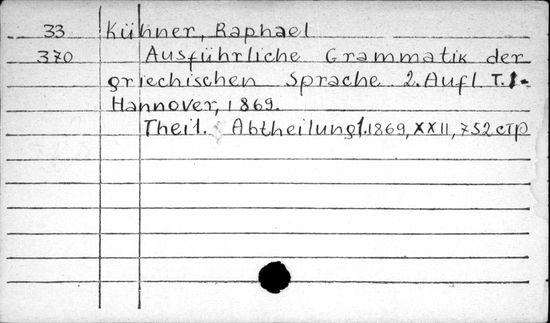 33 Kühner, Raphael
370 Ausführliche Grammatik der
griechischen Sprache 2. Aufl. T. 1.
Hannover, 1869.
Theil. Abtheilung 1. 1869, XXII, 752 стр